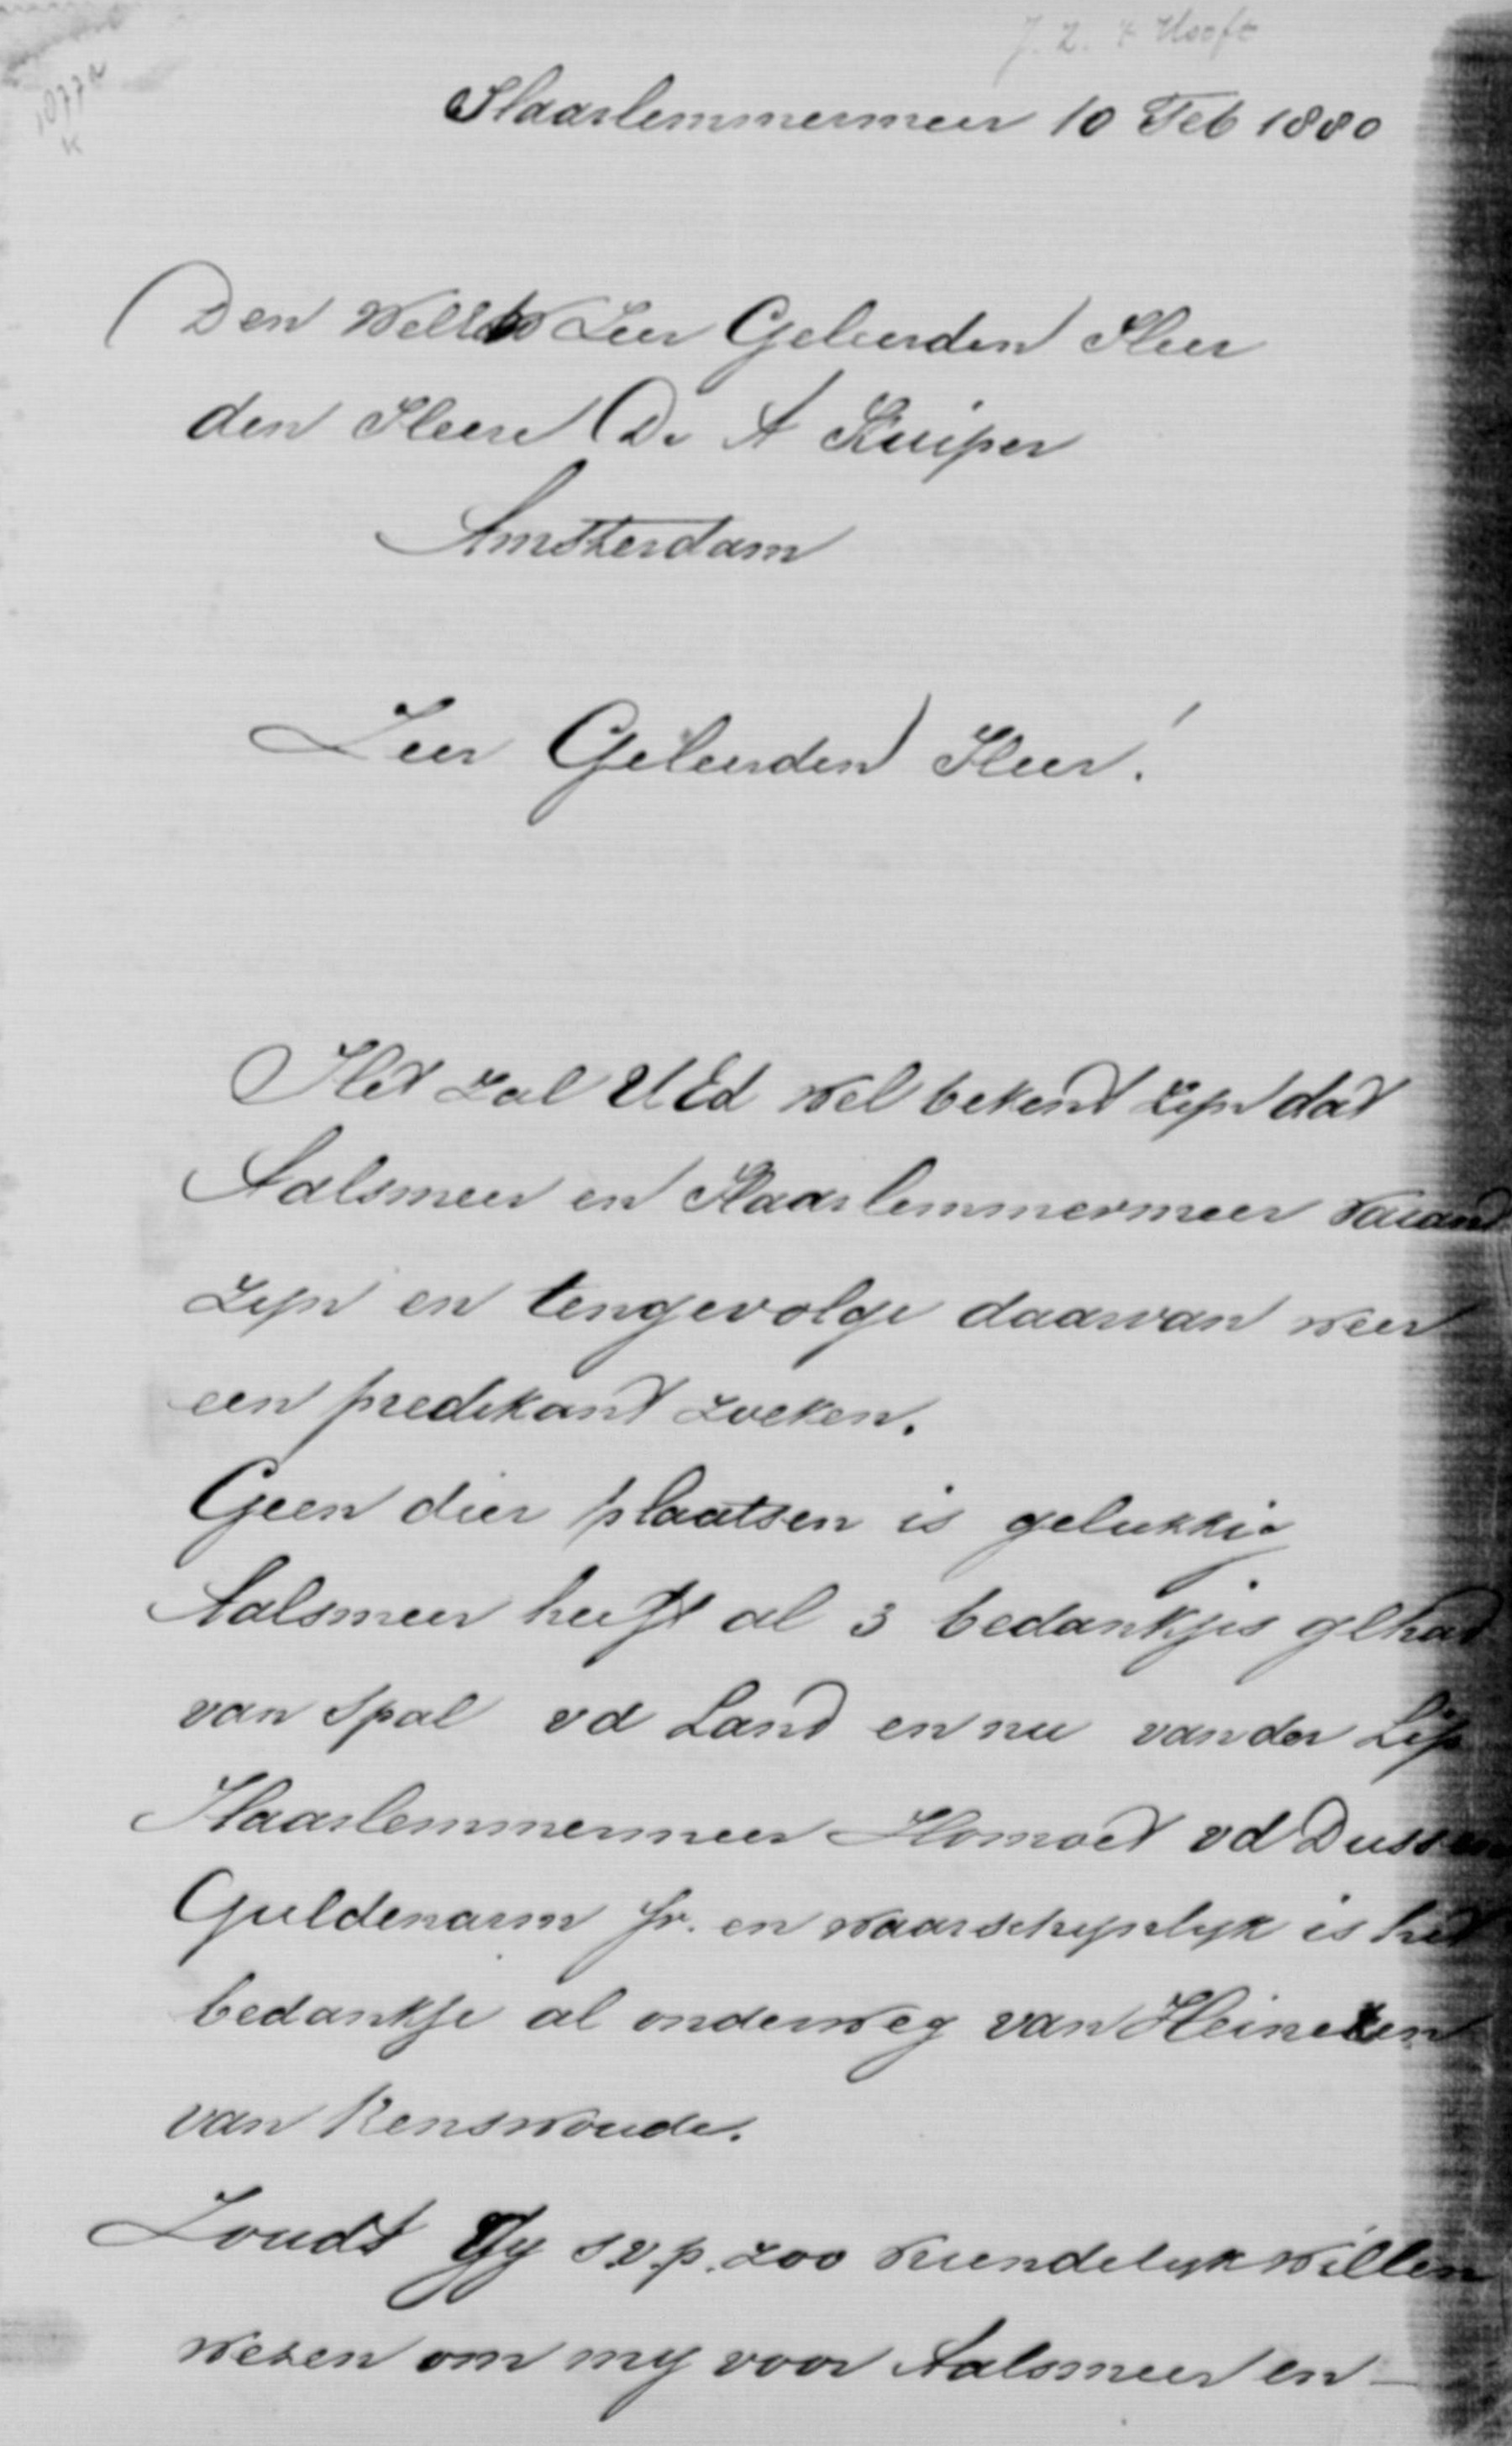 J. Z. 't Hooft
1077a
K
Haarlemmermeer 10 Feb 1880
Den Zeer Geleerden Heer
den Heere Dr A Kuiper
Amsterdam
Zeer Geleerden Heer!
Het zal UEd wel bekend zijn dat
Aalsmeer en Haarlemmermeer vacant
zijn en tengevolge daarvan weer
een predikant zoeken.
Geen dier plaatsen is gelukkig
Aalsmeer heeft al 3 bedankjes gehad
van Spal vd Land en nu van der Lip
Haarlemmermeer Homoet vd Dussen
Guldenarm Jr. en waarschijnlijk is het
bedankje al onderweg van Heineken
van Renswoude.
Zoudt Gy s.v.p. zoo vriendelijk willen
wezen om my voor Aalsmeer en